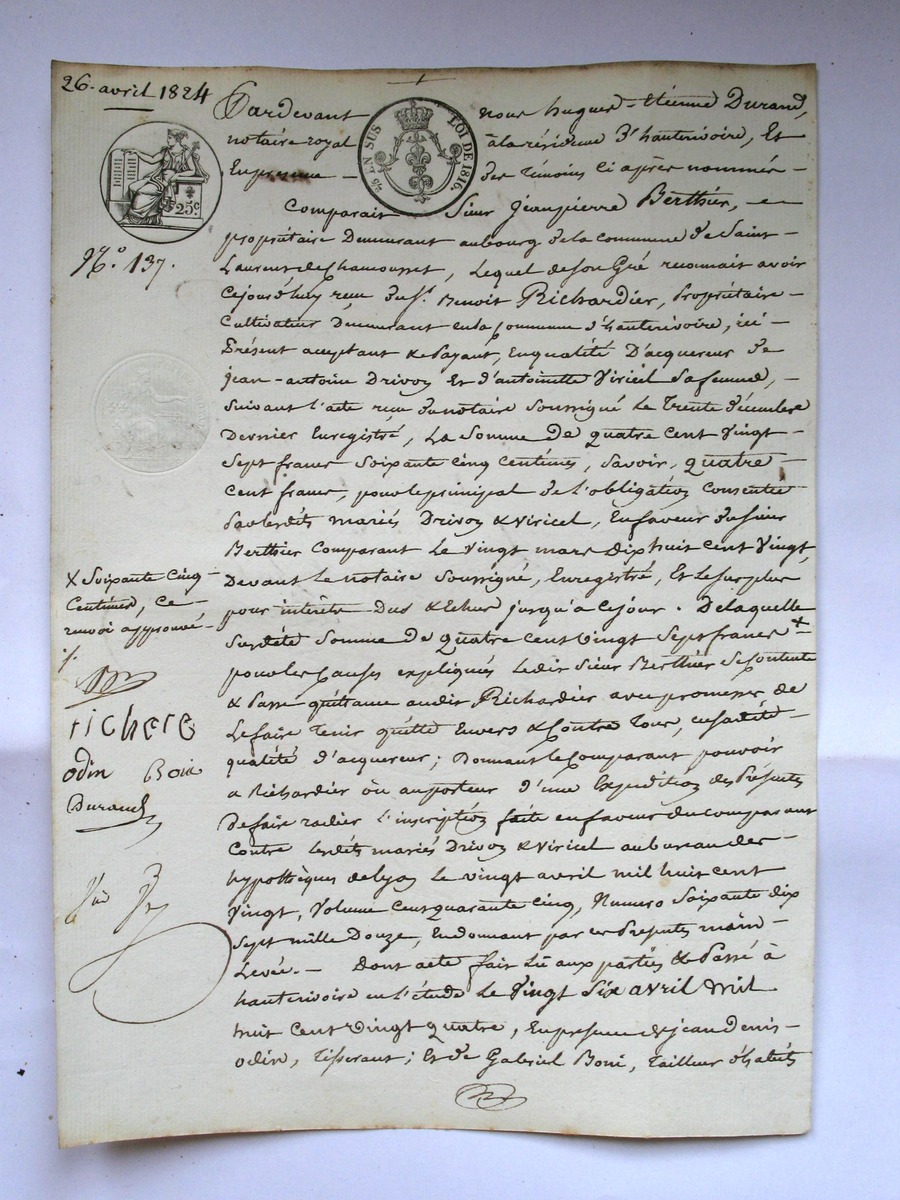 26. avril 1824
25 c
25 EN SUS LOI DE 1816.
N.o 137.
Pardevant nous hugues-étienne Durand,
notaire royal à la résidence d'hauterivoire, Et
En présence - des témoins ci après nommés -
Comparait Sieur Jeanpierre Berthier,
propriétaire Demeurant aubourg dela commune de Saint-
Laurent de Chamousset, Lequel deson Gré reconnait avoir
Cejourd'huy reçu du s.r Benoit Richardier, Propriétaire-
Cultivateur Demeurant enla Commune d'hauterivoire, ici-
Présent acceptant & Payant, Enqualité D'acquereur de
jean-antoine Drivon Et d'antoinette Viricel Safemme, -
suivant l'acte reçu dunotaire soussigné Le Trente décembre
Dernier Enregistré, La Somme De quatre Cent Vingt-
Sept francs Soixante Cinq Centimes, Savoir, quatre-
Cent francs, pour le principal de l'obligation Consentie
Parlesdits mariés Drivon & Viricel, En faveur du sieur
Berthier Comparant Le Vingt mars Dixhuit cent Vingt,
Devant Le notaire Soussigné, Enregistré, Et Lesurplus
pour intérêts Dus & Echus jusqu'à Cejour. Delaquelle
Susdite Somme De quatre Cent Vingt Sept francs x
pour les Causes expliquées Ledit Sieur Berthier Se Contente
& Passe quittance audit Richardier avec promesse de
Le faire Tenir quitte Envers & Contre Tous, ensadite-
qualité d'acquereur; Donnant Le Comparant pouvoir
a Richardier ou auporteur d'une Expédition des Présentes
De faire radier L'inscription faite en faveur du comparant
Contre Lesdits mariés Drivon & Viricel au bureau des-
hypothèques de Lyon Le vingt avril mil huit cent
Vingt, Volume Centquarante Cinq, Numero Soixante dix
Sept mille Douze, En donnant par ces Présentes main-
Levée. - Dont acte fait Lû aux parties & Passé à
hauterivoire en L'étude Le Vingt Six avril mil
huit Cent Vingt quatre, En présence de jean denis-
odin, Tisserant; Et de Gabriel Boni, Tailleur d'habits
X Soixante Cinq
Centimes, Ce
renvoi approuvé-
richere
odin Boni
Durand